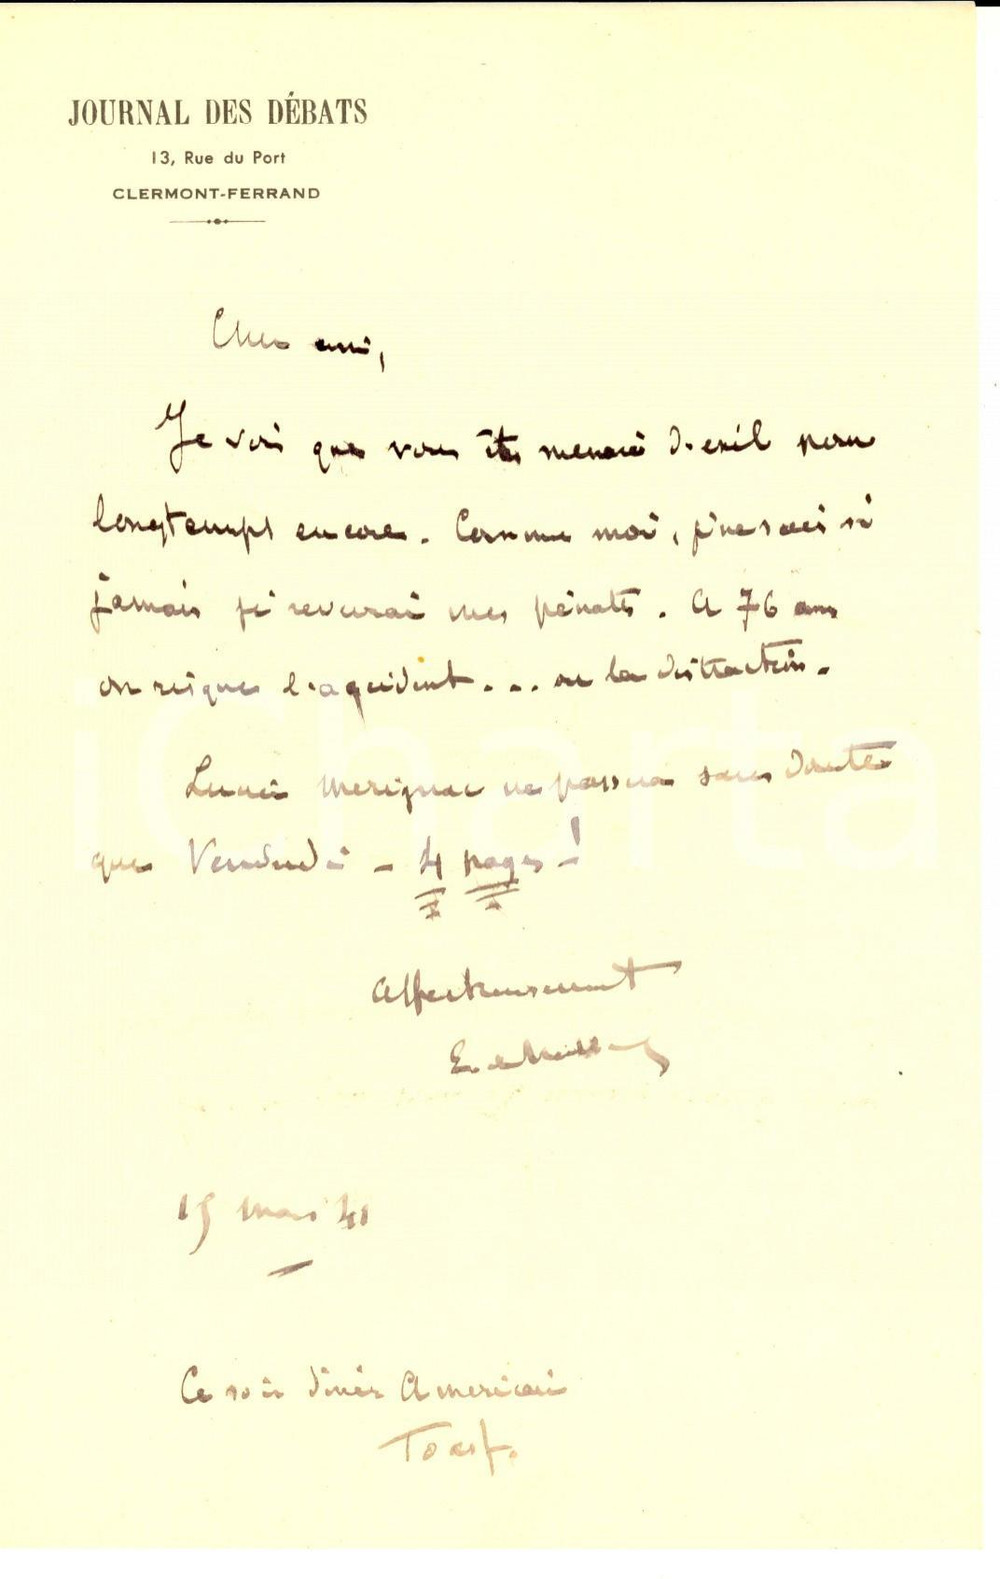 JOURNAL DES DÉBATS
13, Rue du Port
CLERMONT-FERRAND
Cher ami,
Je vois que vous êtes menacé d'exil pour
longtemps encore. Comme moi, je ne sais si
jamais je reverrai mes pénates. A 76 ans
on risque l'accident... ou la distraction.
Lucien Merignac ne passera sans doute
que Vendredi - 4 pages - !
Affectueusement
E. de
15 mars 41
Ce soir dîner Américain
Toast.
iCharta